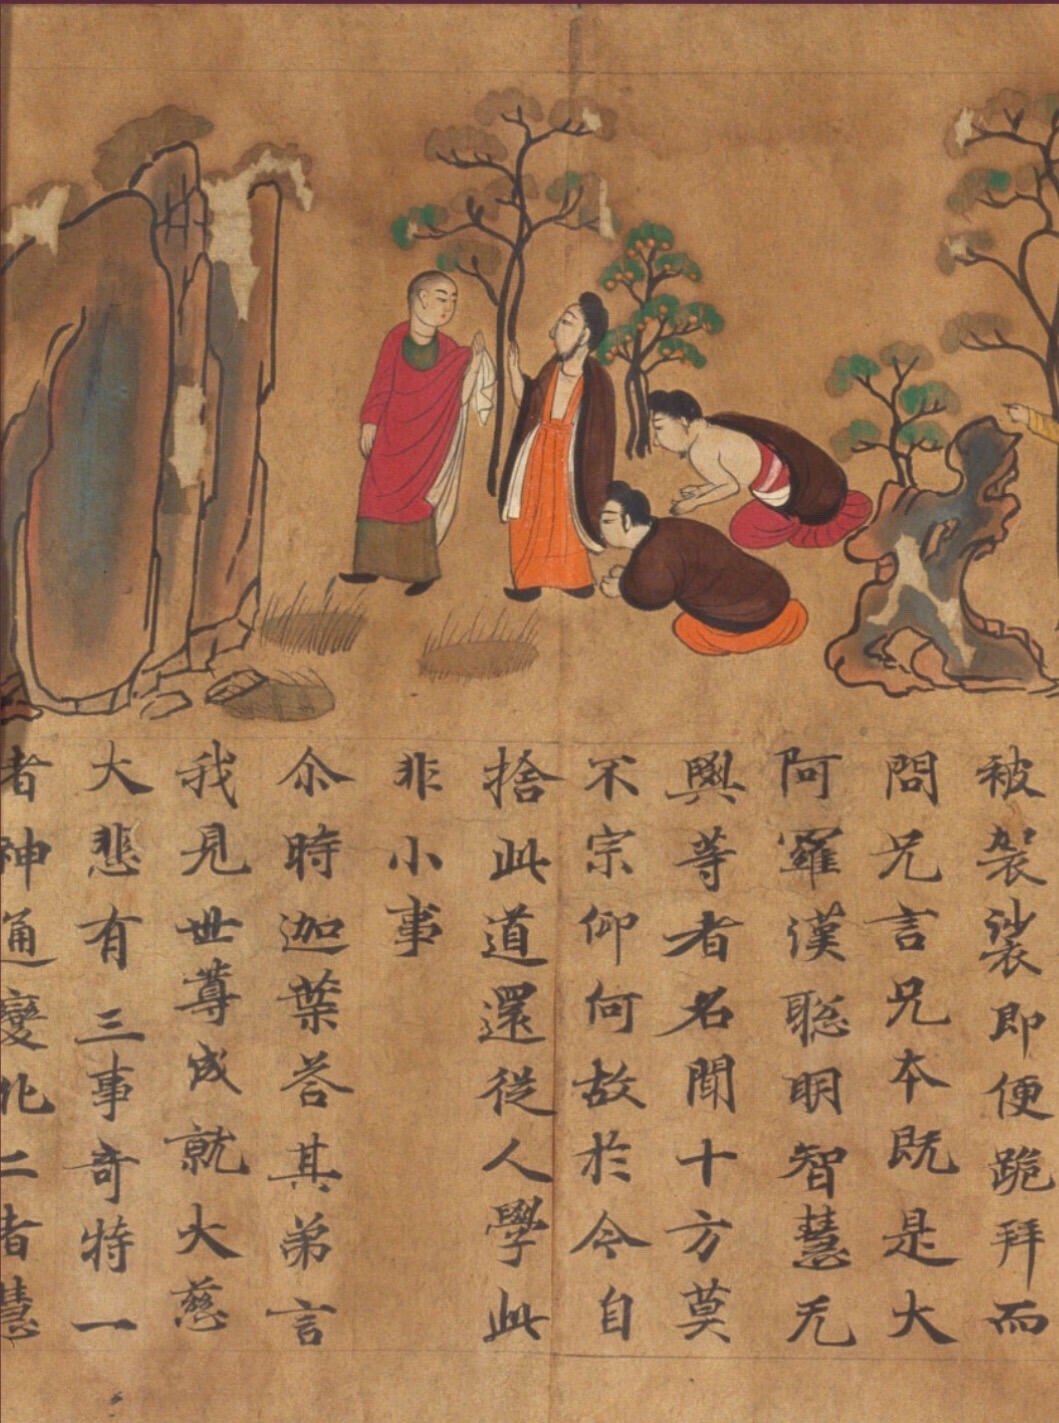 被袈裟即便跪拜而
問兄言兄本既是大
阿羅漢聡明智慧无
與等者名聞十方莫
不宗仰何故於今自
捨此道還從人學此
非小事
尒時迦葉荅其弟言
我見世尊成就大慈
大悲有三事奇特一
者神通變化二者慧